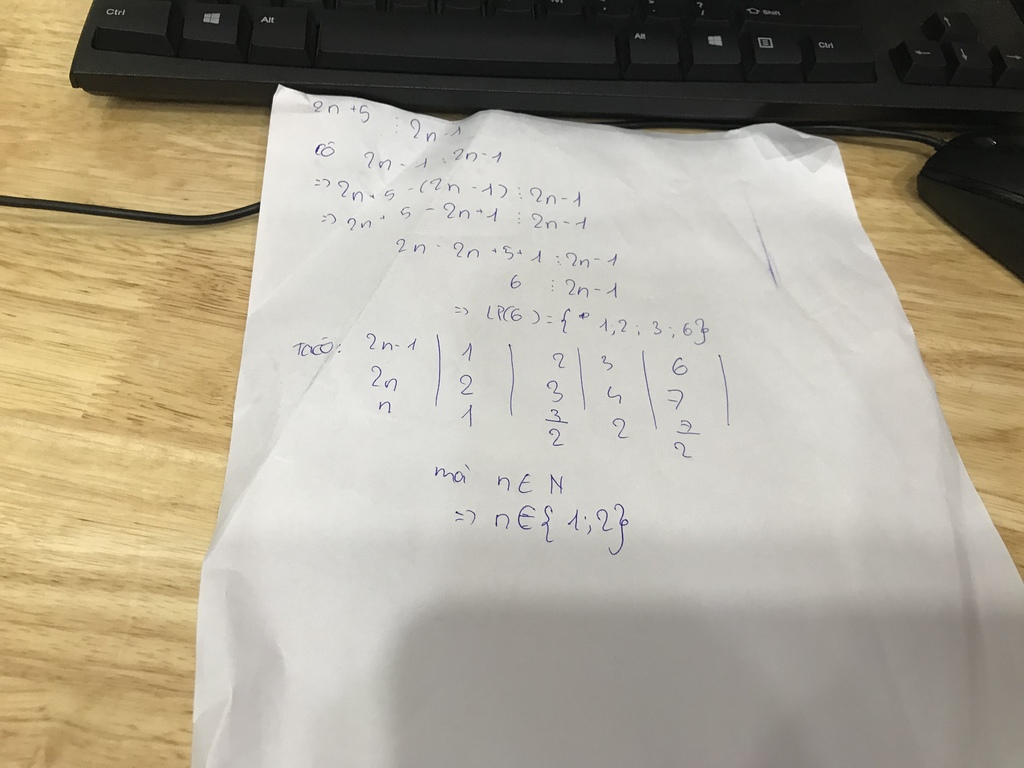 Ctrl Alt Alt Ctrl Shift
2n+5 ⋮ 2n-1
có 2n-1 ⋮ 2n-1
=> 2n+5-(2n-1) ⋮ 2n-1
=> 2n+5-2n+1 ⋮ 2n-1
2n-2n+5+1 ⋮ 2n-1
6 ⋮ 2n-1
=> Ư(6)={1,2;3;6}
Ta có: 2n-1 | 1 | 2 | 3 | 6 |
2n | 2 | 3 | 4 | 7 |
n | 1 | 3/2 | 2 | 7/2
mà n∈N
=> n∈{1;2}